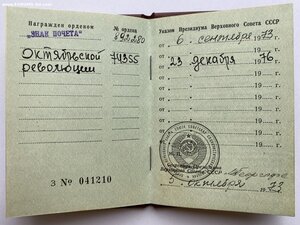 Награжден орденом
№ ордена
"ЗНАК ПОЧЕТА"
692280
Октябрьской
74355
революции
З № 041210
Указом Президиума Верховного Совета СССР
от 6 сентября 1973.
от 23 декабря 1976.
от 19 г.
от 19 г.
от 19 г.
Секретарь Президиума
Верховного Совета СССР
октября 1973